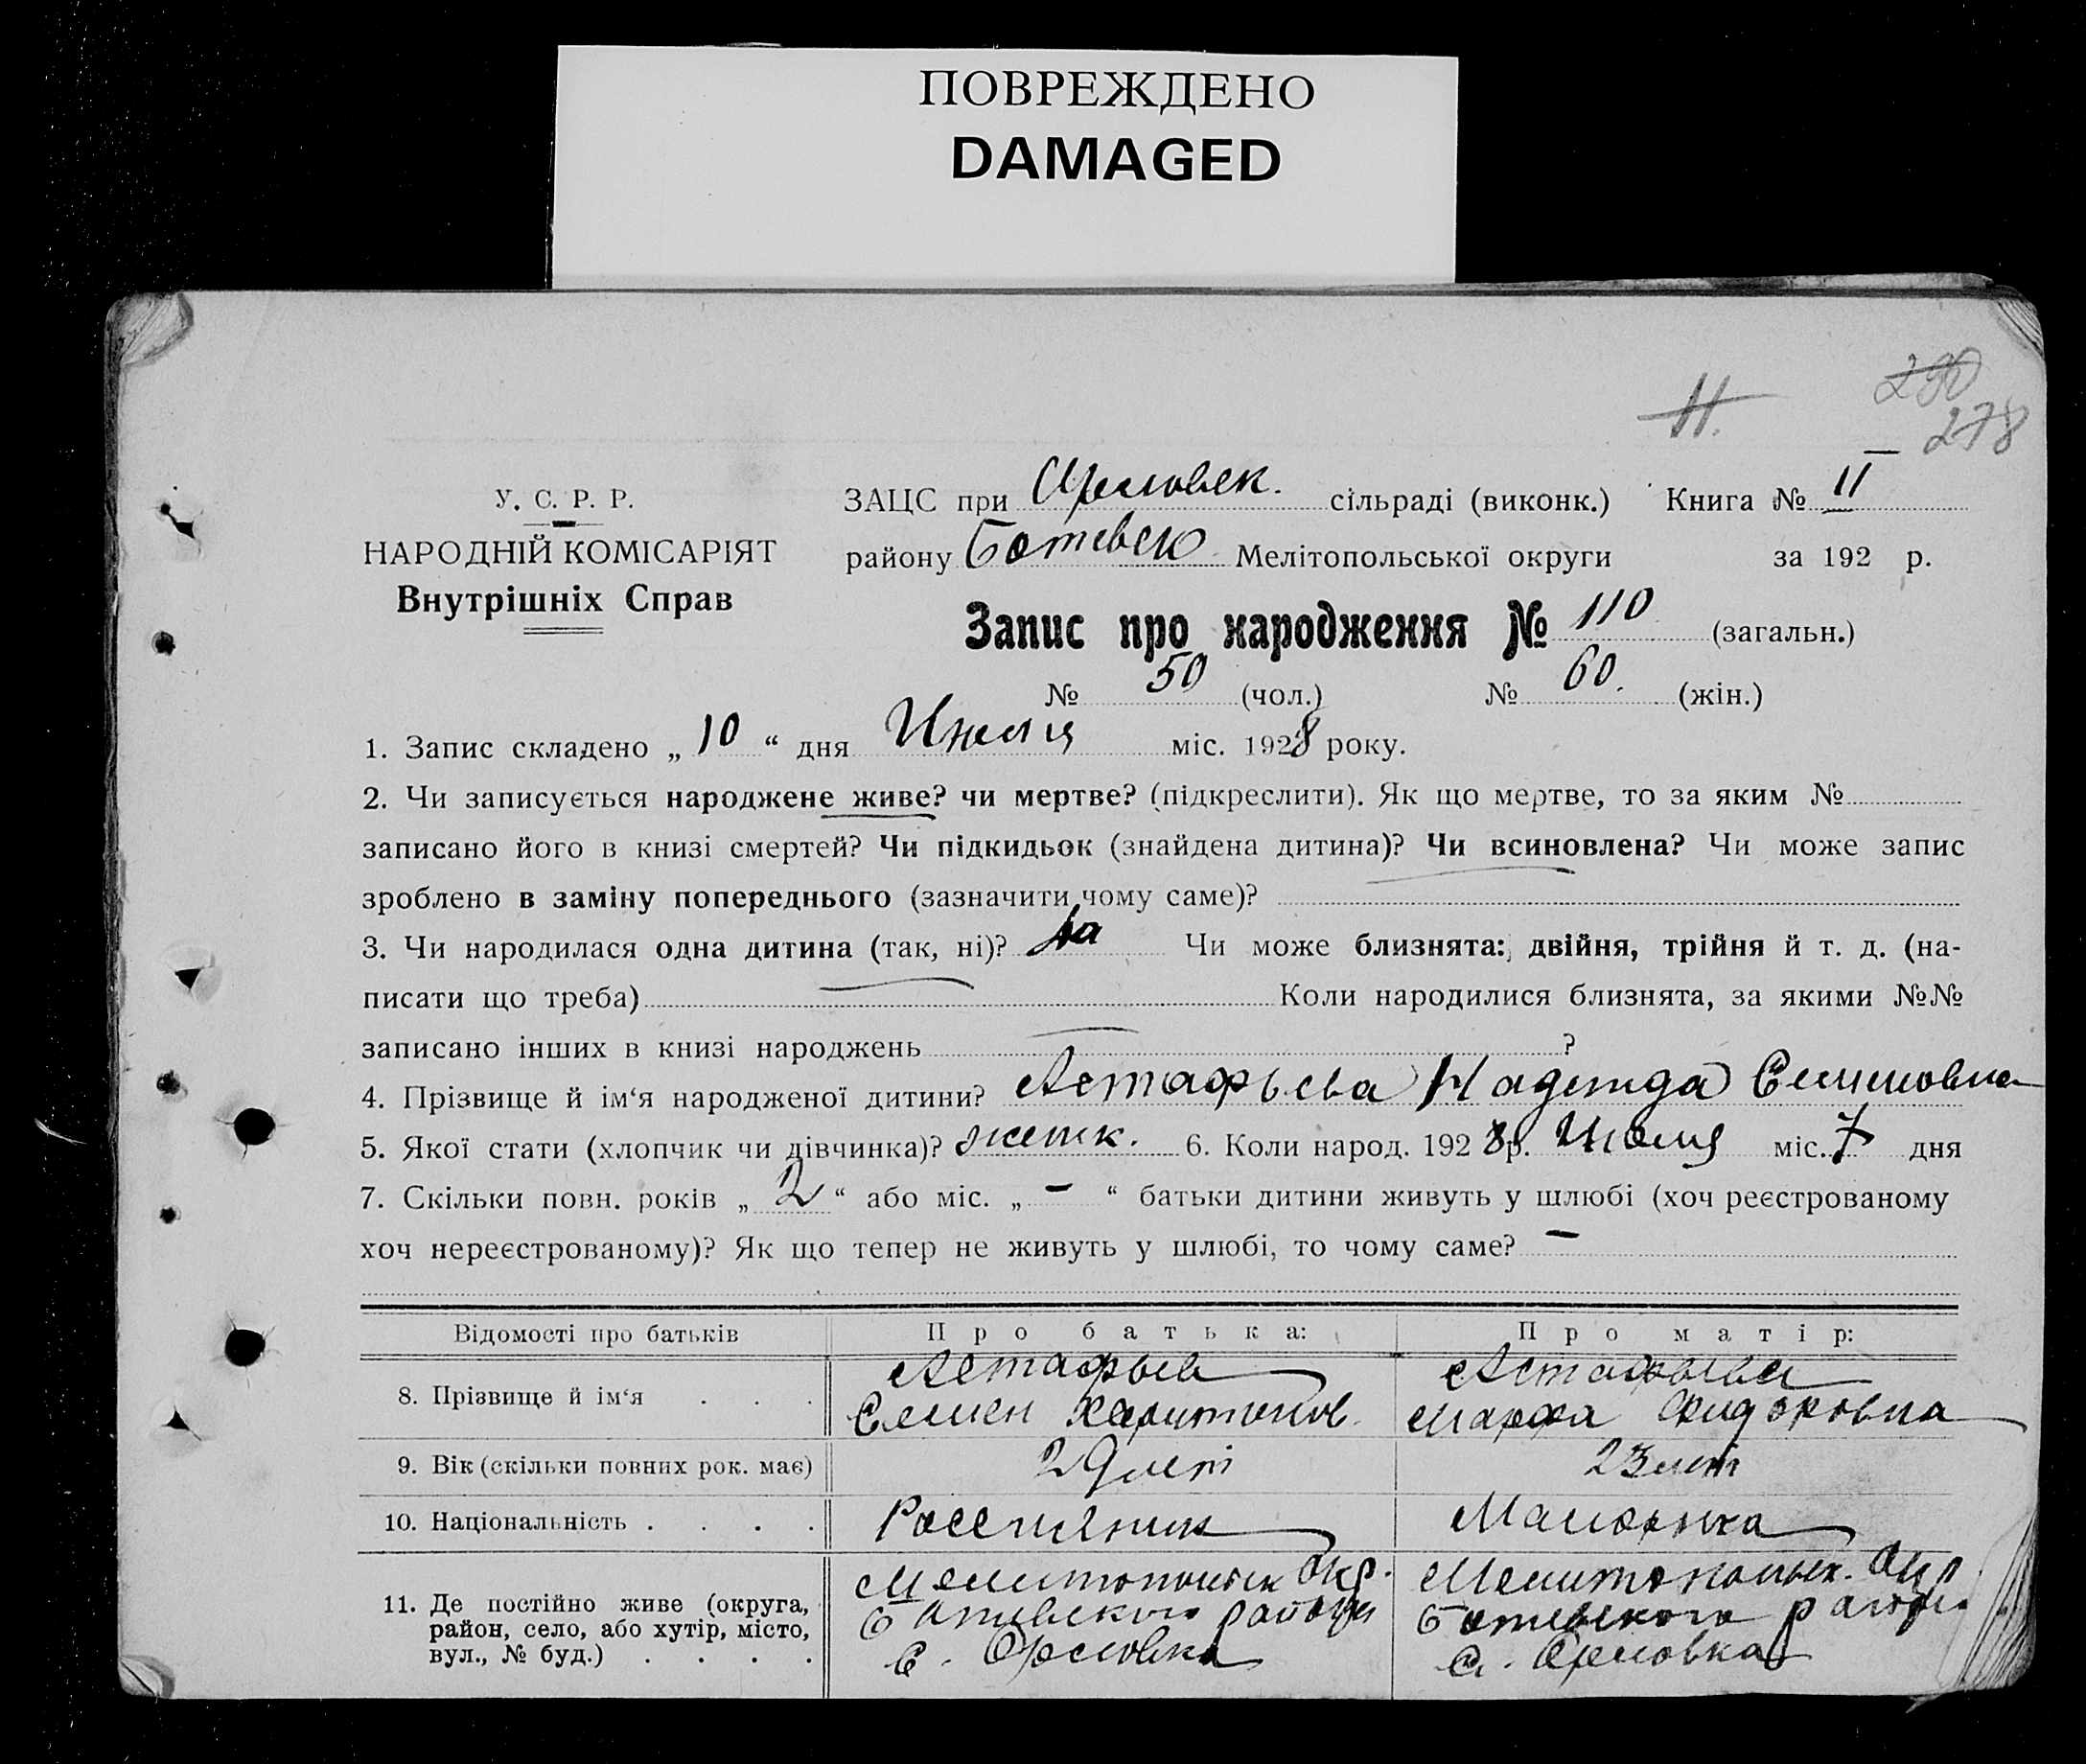 ПОВРЕЖДЕНО
DAMAGED
11.
290
278
У. С. Р. Р.
НАРОДНІЙ КОМІСАРІЯТ
Внутрішніх Справ
ЗАЦС при Орловск. сільраді (виконк.) Книга № II
району Ботевск Мелітопольської округи за 192 р.
Запис про народження № 110 (загальн.)
№ 50 (чол.) № 60. (жін.)
1. Запис складено „ 10 “ дня Июля міс. 1928 року.
2. Чи записується народжене живе? чи мертве? (підкреслити). Як що мертве, то за яким №
записано його в книзі смертей? Чи підкидьок (знайдена дитина)? Чи всиновлена? Чи може запис
зроблено в заміну попереднього (зазначити чому саме)?
3. Чи народилася одна дитина (так, ні)? да Чи може близнята: двійня, трійня й т. д. (на-
писати що треба) Коли народилися близнята, за якими №№
записано інших в книзі народжень ?
4. Прізвище й ім‘я народженої дитини? Астафьева Надежда Семеновна
5. Якої стати (хлопчик чи дівчинка)? женск. 6. Коли народ. 1928 р. Июля міс. 7 дня
7. Скільки повн. років „ 2 “ або міс. „ - “ батьки дитини живуть у шлюбі (хоч реєстрованому
хоч нереєстрованому)? Як що тепер не живуть у шлюбі, то чому саме? -
Відомості про батьків Про батька: Про матір:
8. Прізвище й ім‘я . . . Астафьев Астафьева
Семен Харитонов. Марфа Фидоровна
9. Вік (скільки повних рок. має) 29 лет 23 лет
10. Національність . . . . Россиянин
11. Де постійно живе (округа, Мелитопольск Окр. Мелитопольск. Окр
район, село, або хутір, місто, Ботевского района Ботевского района
вул., № буд.) . . . . с. Орловка с. Орловка